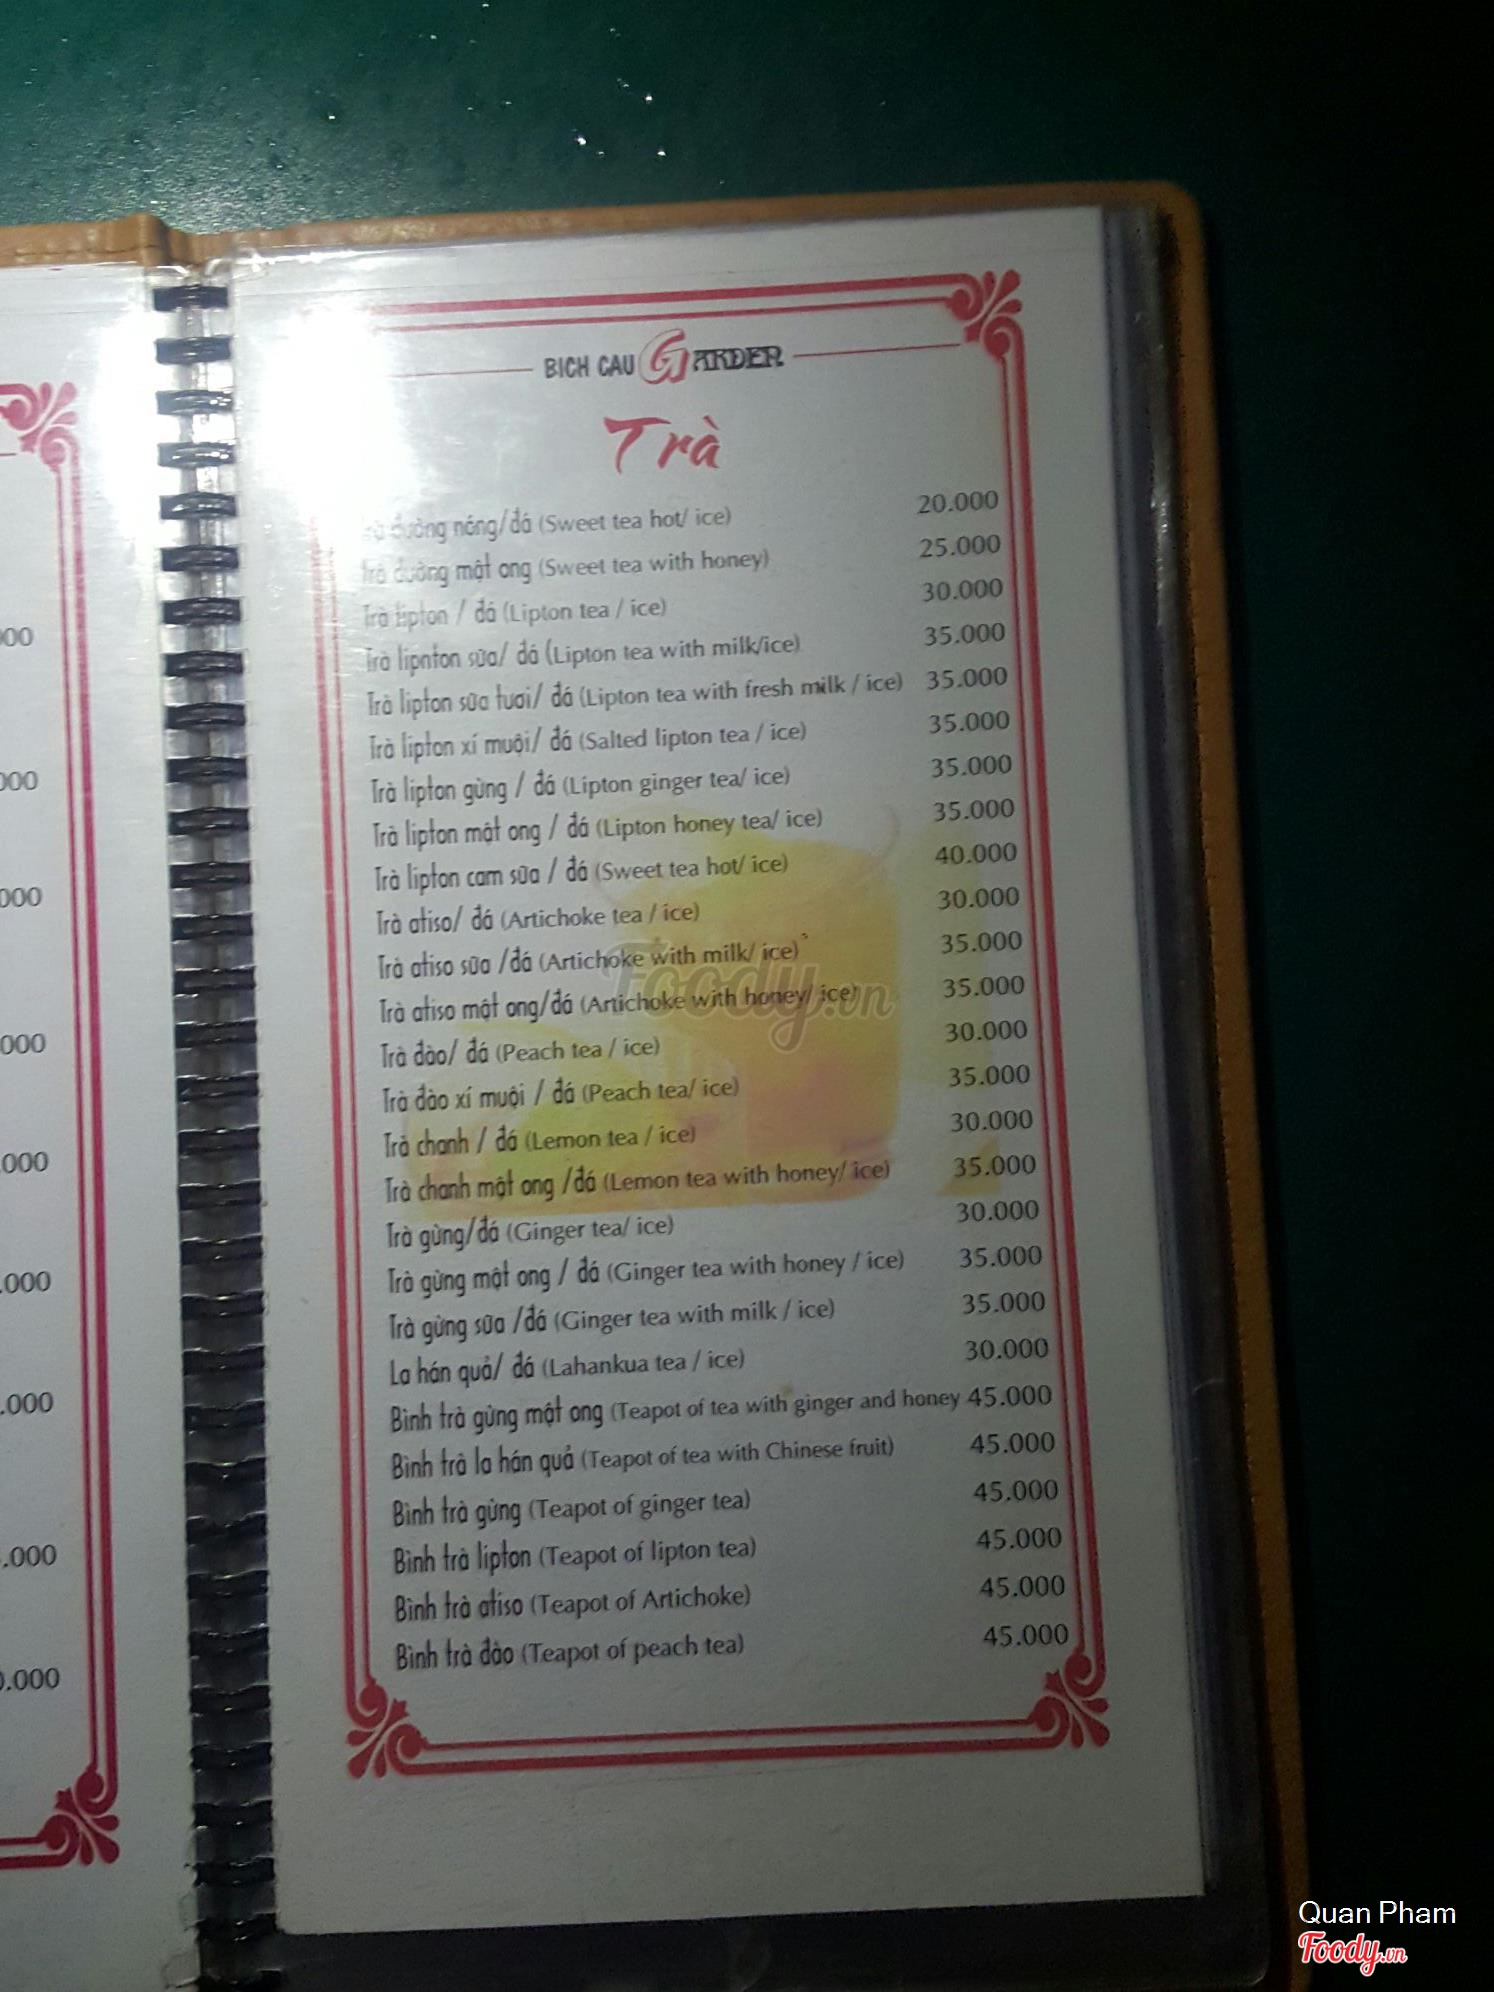 BICH CAU GARDEN
Trà
đường nóng/đá (Sweet tea hot/ ice) 20.000
Trà đường mật ong (Sweet tea with honey) 25.000
Trà lipton / đá (Lipton tea / ice) 30.000
Trà lipnton sữa/ đá (Lipton tea with milk/ice) 35.000
Trà lipton sữa tươi/ đá (Lipton tea with fresh milk / ice) 35.000
Trà lipton xí muội/ đá (Salted lipton tea / ice) 35.000
Trà lipton gừng / đá (Lipton ginger tea/ ice) 35.000
Trà lipton mật ong / đá (Lipton honey tea/ ice) 35.000
Trà lipton cam sữa / đá (Sweet tea hot/ ice) 40.000
Trà atiso/ đá (Artichoke tea / ice) 30.000
Trà atiso sữa /đá (Artichoke with milk/ ice) 35.000
Trà atiso mật ong/đá (Artichoke with honey/ ice) 35.000
Trà đào/ đá (Peach tea / ice) 30.000
Trà đào xí muội / đá (Peach tea/ ice) 35.000
Trà chanh / đá (Lemon tea / ice) 30.000
Trà chanh mật ong /đá (Lemon tea with honey/ ice) 35.000
Trà gừng/đá (Ginger tea/ ice) 30.000
Trà gừng mật ong / đá (Ginger tea with honey / ice) 35.000
Trà gừng sữa /đá (Ginger tea with milk / ice) 35.000
La hán quả/ đá (Lahankua tea / ice) 30.000
Bình trà gừng mật ong (Teapot of tea with ginger and honey 45.000
Bình trà la hán quả (Teapot of tea with Chinese fruit) 45.000
Bình trà gừng (Teapot of ginger tea) 45.000
Bình trà lipton (Teapot of lipton tea) 45.000
Bình trà atiso (Teapot of Artichoke) 45.000
Bình trà đào (Teapot of peach tea) 45.000
Foody.vn
Quan Pham
Foody.vn